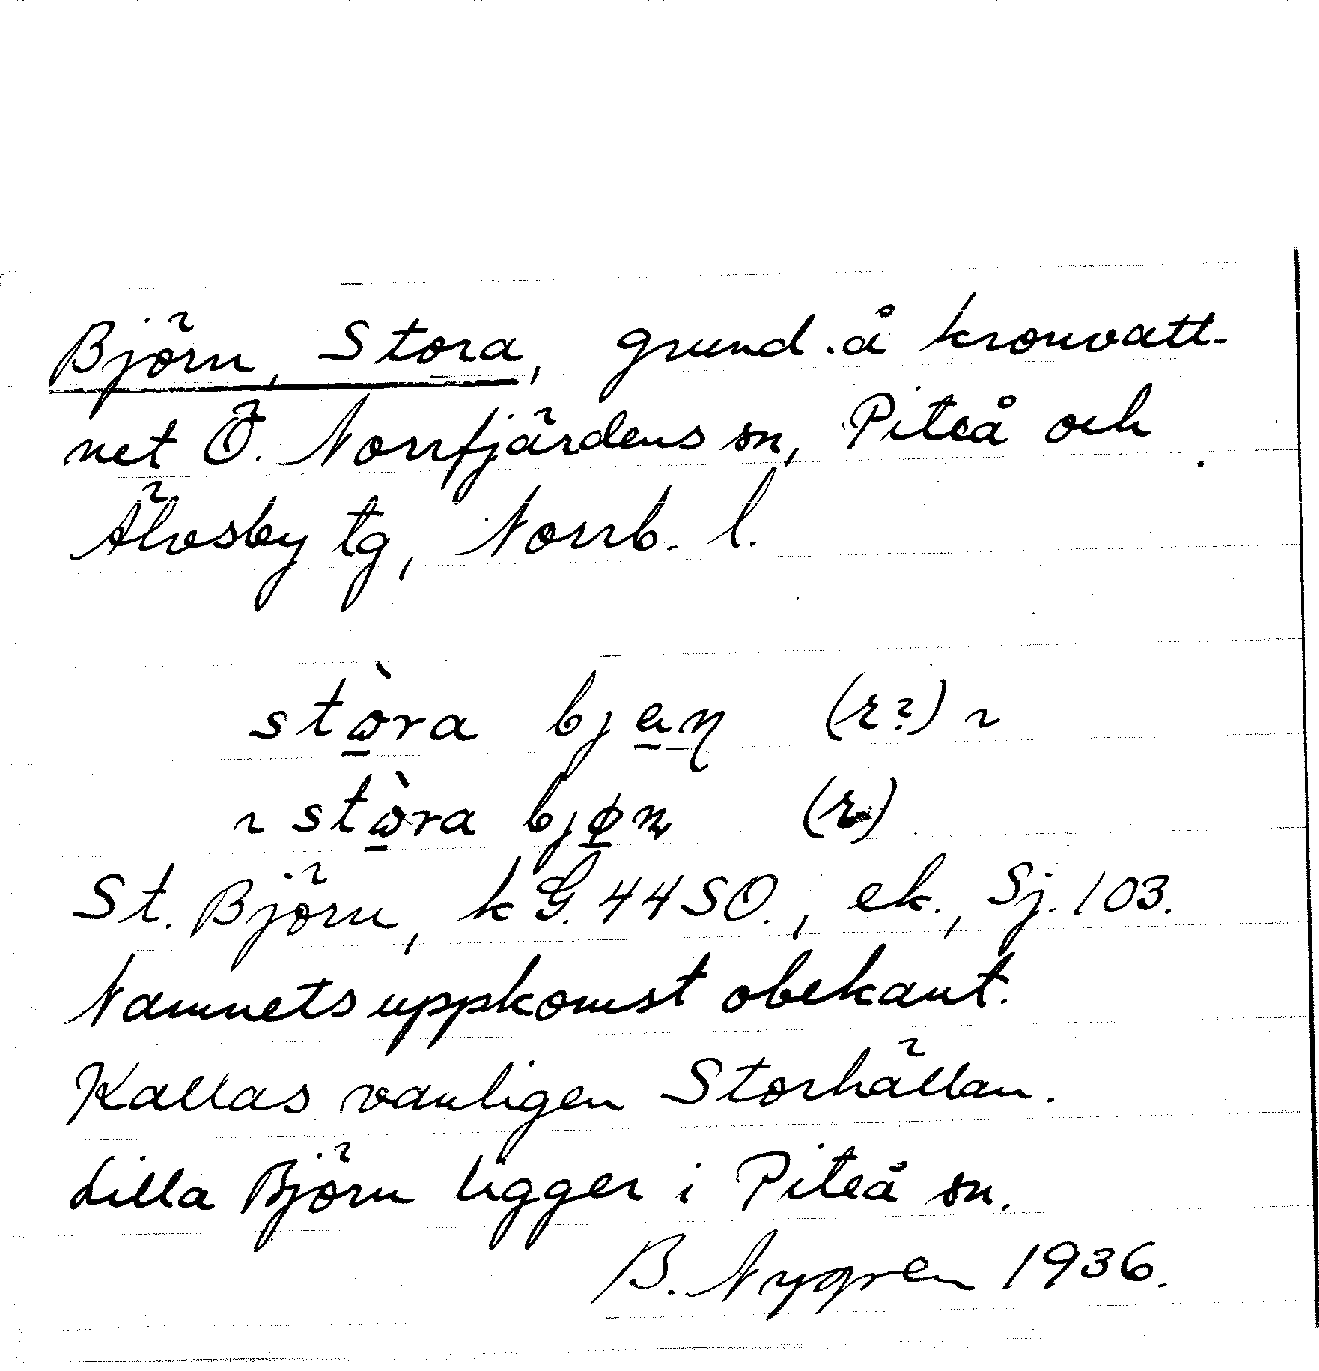 Björn, Stora, grund å kronvatt-
net Ö. Norrfjärdens sn, Piteå och
Älvsby tg, Norrb. l.
stὼ̲ra bja̲ṉ (r?) ~
~ stὼ̲ra bjø̲n (r)
St. Björn, kG. 44 SO., ek., Sj. 103.
Namnets uppkomst obekant.
Kallas vanligen Storhällan.
Lilla Björn ligger i Piteå sn.
B. Nygren 1936.